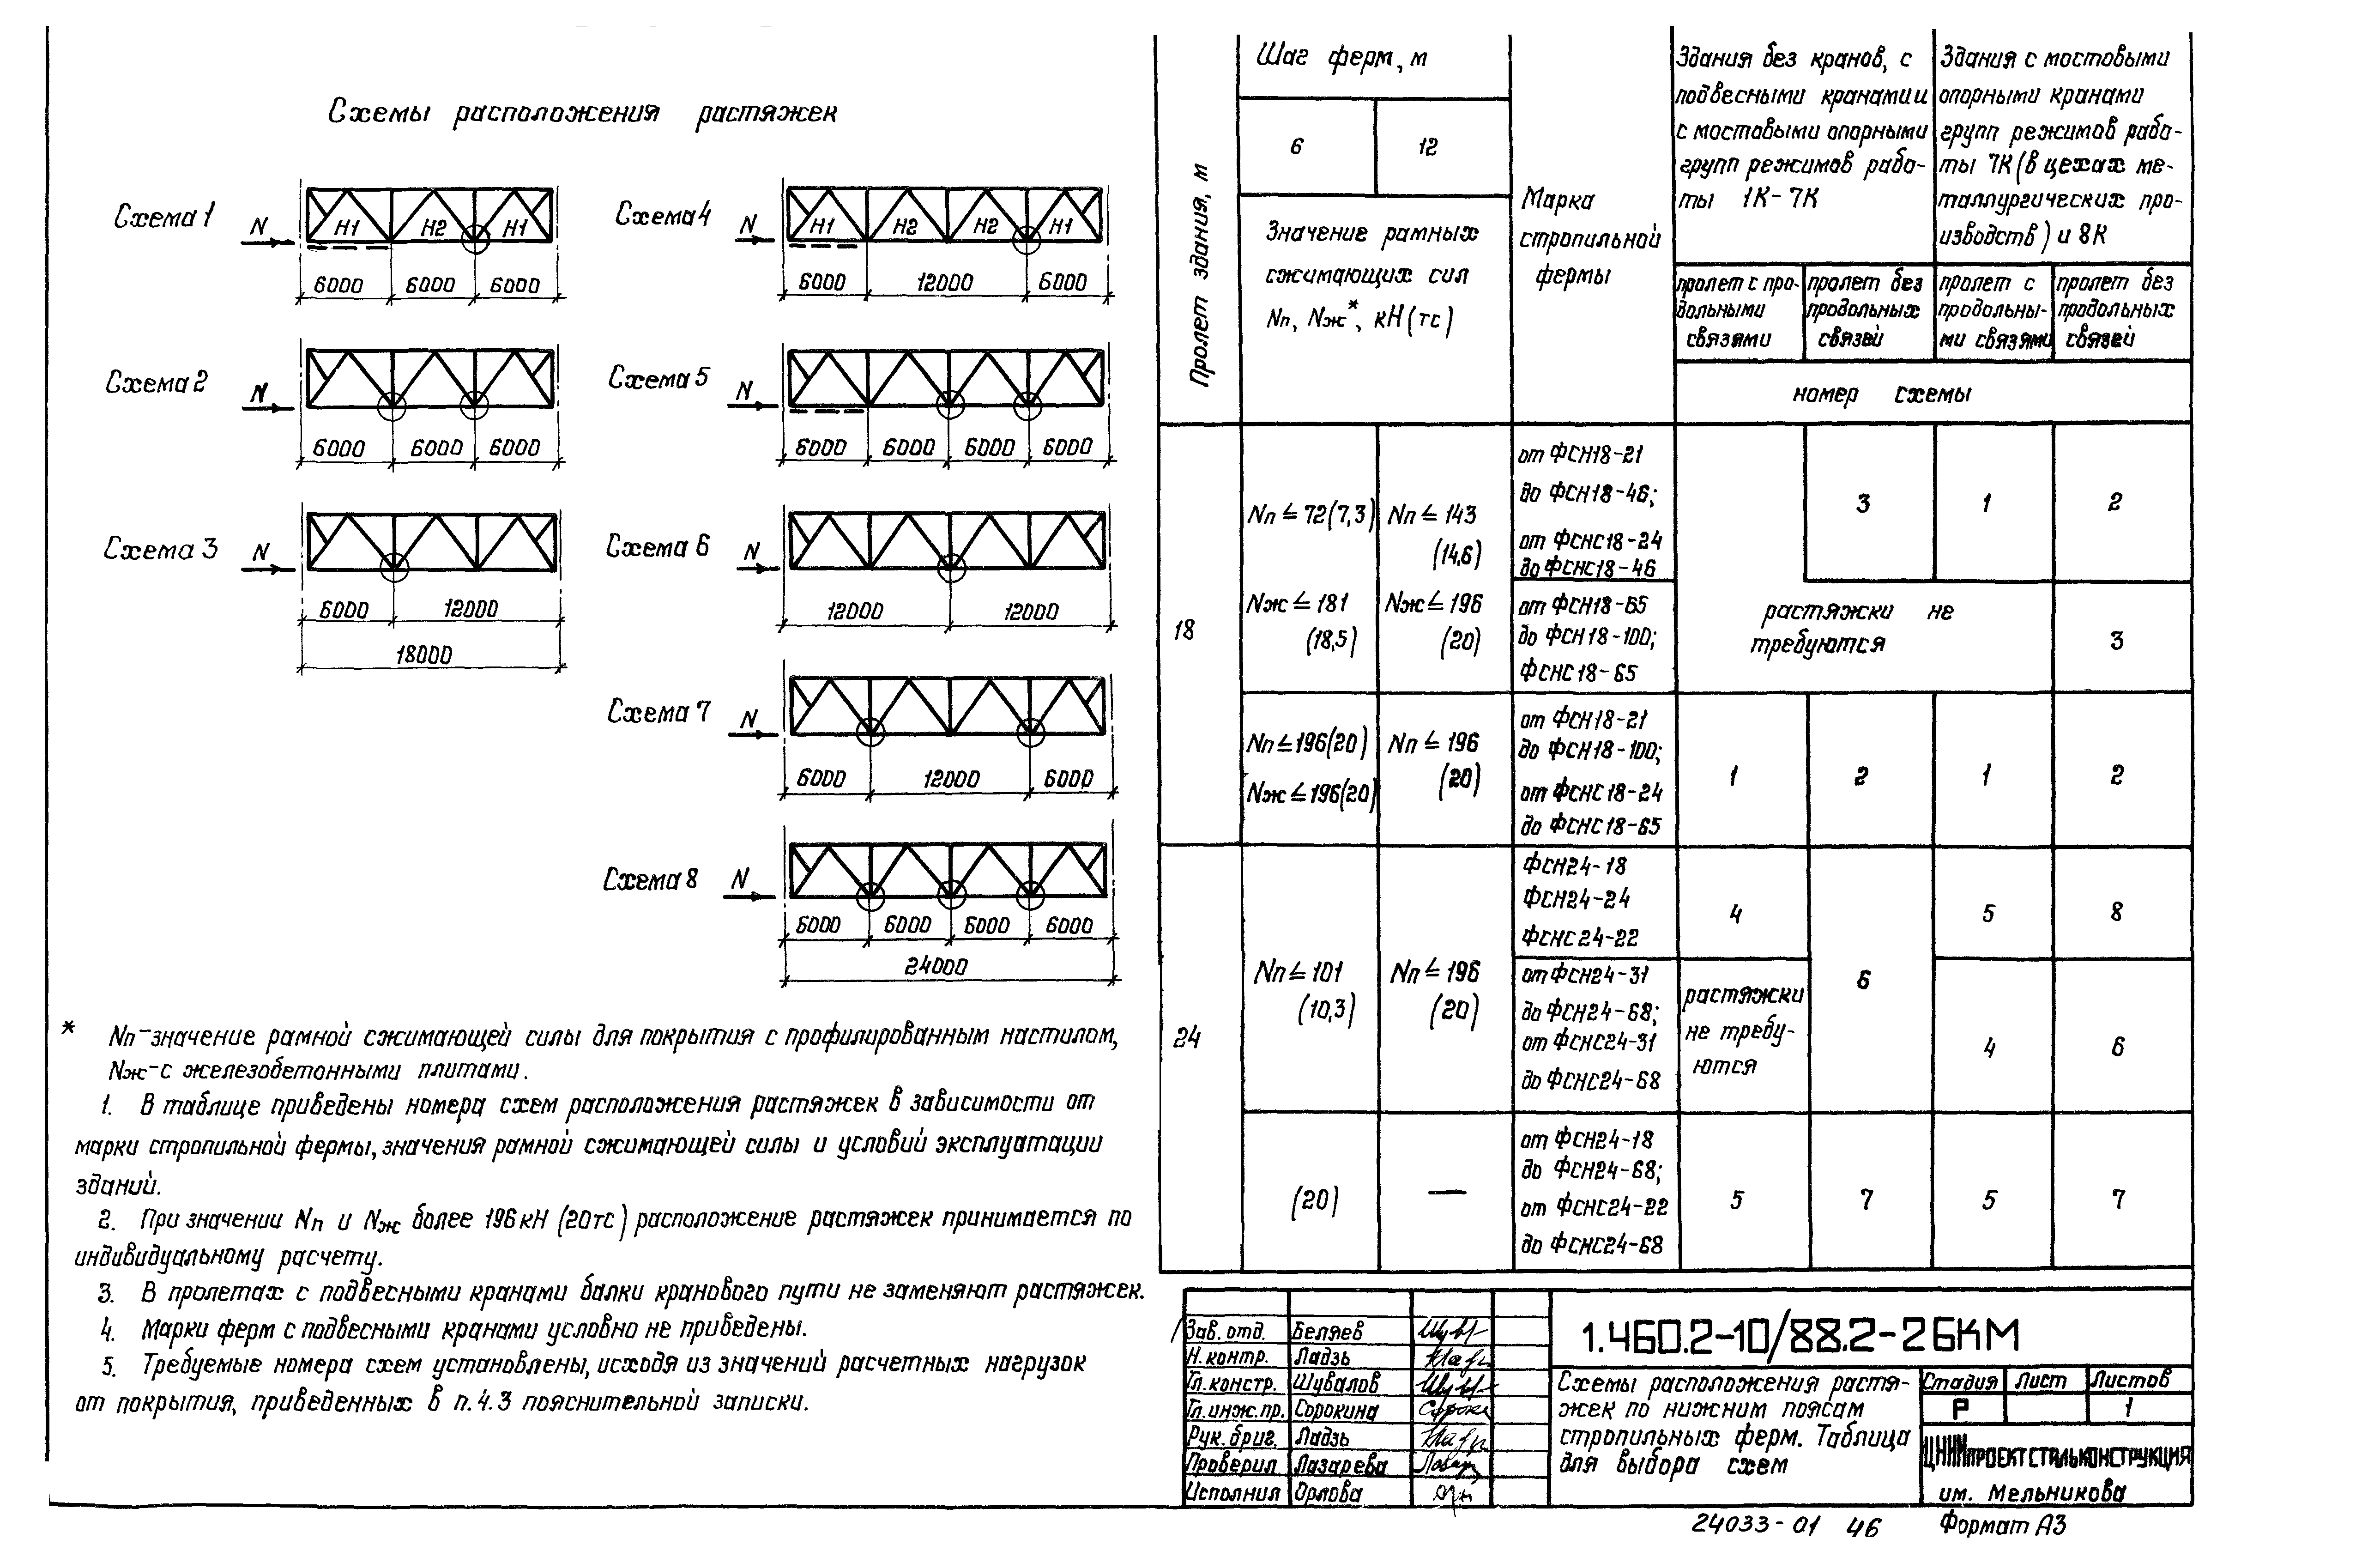 Схемы расположения растяжек
Схема 1
N
Н1 Н2 Н1
6000 6000 6000
Схема 2
N
6000 6000 6000
Схема 3
N
6000 12000
18000
Схема 4
N
Н1 Н2 Н2 Н1
6000 12000 6000
Схема 5
N
6000 6000 6000 6000
Схема 6
N
12000 12000
Схема 7
N
6000 12000 6000
Схема 8
N
6000 6000 6000 6000
24000
* Nп-значение рамной сжимающей силы для покрытия с профилированным настилом,
Nж-с железобетонными плитами.
1. В таблице приведены номера схем расположения растяжек в зависимости от
марки стропильной фермы, значения рамной сжимающей силы и условий эксплуатации
зданий.
2. При значении Nп и Nж более 196 кН (20тс) расположение растяжек принимается по
индивидуальному расчету.
3. В пролетах с подвесными кранами балки кранового пути не заменяют растяжек.
4. Марки ферм с подвесными кранами условно не приведены.
5. Требуемые номера схем установлены, исходя из значений расчетных нагрузок
от покрытия, приведенных в п.4.3 пояснительной записки.
Пролет здания, м
Шаг ферм, м
6 12
Значение рамных
сжимающих сил
Nп, Nж*, кН (тс)
Марка
стропильной
фермы
Здания без кранов, с
подвесными кранами и
с мостовыми опорными
групп режимов рабо-
ты 1К-7К
Здания с мостовыми
опорными кранами
групп режимов рабо-
ты 7К (в цехах ме-
таллургических про-
изводств) и 8К
пролет с про-
дольными
связями
пролет без
продольных
связей
пролет с
продольны-
ми связями
пролет без
продольных
связей
номер схемы
18
Nп ≤ 72(7,3)
Nж ≤ 181
(18,5)
Nп ≤ 143
(14,6)
Nж ≤ 196
(20)
от ФСН18-21
до ФСН18-46;
от ФСНС18-24
до ФСНС18-46
3 1 2
от ФСН18-65
до ФСН18-100;
ФСНС18-65
растяжки не
требуются
3
Nп ≤ 196(20)
Nж ≤ 196(20)
Nп ≤ 196
(20)
от ФСН18-21
до ФСН18-100;
от ФСНС18-24
до ФСНС18-65
1 2 1 2
24
Nп ≤ 101
(10,3)
Nп ≤ 196
(20)
ФСН24-18
ФСН24-24
ФСНС24-22
4 6 5 8
от ФСН24-31
до ФСН24-68;
от ФСНС24-31
до ФСНС24-68
растяжки
не требу-
ются
4 6
(20) —
от ФСН24-18
до ФСН24-68;
от ФСНС24-22
до ФСНС24-68
5 7 5 7
Зав. отд. Беляев
Н. контр. Ладзь
Гл. констр. Шувалов
Гл. инж. пр. Сорокина
Рук. бриг. Ладзь
Проверил Лазарева
Исполнил Орлова
1.460.2-10/88.2-26КМ
Схемы расположения растя-
жек по нижним поясам
стропильных ферм. Таблица
для выбора схем
Стадия Лист Листов
Р 1
ЦНИИПРОЕКТСТАЛЬКОНСТРУКЦИЯ
им. Мельникова
24033-01 46 Формат А3